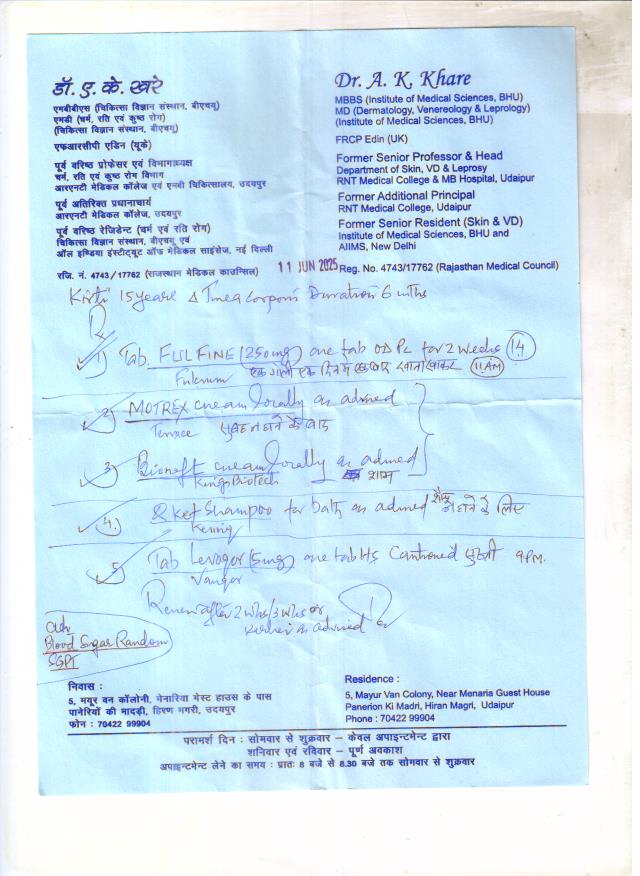 डॉ. ए. के. खरे
एमबीबीएस (चिकित्सा विज्ञान संस्थान, बीएचयू)
एमडी (चर्म, रति एवं कुष्ठ रोग)
(चिकित्सा विज्ञान संस्थान, बीएचयू)
एफआरसीपी एडिन (यूके)
पूर्व वरिष्ठ प्रोफेसर एवं विभागाध्यक्ष
चर्म, रति एवं कुष्ठ रोग विभाग
आरएनटी मेडिकल कॉलेज एवं एमबी चिकित्सालय, उदयपुर
पूर्व अतिरिक्त प्रधानाचार्य
आरएनटी मेडिकल कॉलेज, उदयपुर
पूर्व वरिष्ठ रेजिडेन्ट (चर्म एवं रति रोग)
चिकित्सा विज्ञान संस्थान, बीएचयू एवं
ऑल इण्डिया इंस्टीट्यूट ऑफ मेडिकल साइंसेज, नई दिल्ली
रजि. नं. 4743/17762 (राजस्थान मेडिकल काउन्सिल)
Dr. A. K. Khare
MBBS (Institute of Medical Sciences, BHU)
MD (Dermatology, Venereology & Leprology)
(Institute of Medical Sciences, BHU)
FRCP Edin (UK)
Former Senior Professor & Head
Department of Skin, VD & Leprosy
RNT Medical College & MB Hospital, Udaipur
Former Additional Principal
RNT Medical College, Udaipur
Former Senior Resident (Skin & VD)
Institute of Medical Sciences, BHU and
AIIMS, New Delhi
11 JUN 2025 Reg. No. 4743/17762 (Rajasthan Medical Council)
Kirti 15 years Δ Tinea Corporis Duration 6 mths
1) Tab FULFINE (250mg) one tab OD PC for 2 weeks 14
Fulcrum एक गोली एक दिन में एक बार खाना खाकर 11 AM
2) MOTREX cream locally as advised
Terrace सुबह नहाने के बाद
3) cream locally as advised
Kings Biotech शाम
4. Ket Shampoo for bath as advised नहाने के लिए
5 Tab (5mg) one tab HS Cautioned सुस्ती 9 P.M.
Review after 2 wks/3 wks or
earlier as advised
Adv
Blood Sugar Random
SGPT
निवास :
5, मयूर वन कॉलोनी, मेनारिया गेस्ट हाउस के पास
पानेरियों की मादड़ी, हिरण मगरी, उदयपुर
फोन : 70422 99904
Residence :
5, Mayur Van Colony, Near Menaria Guest House
Panerion Ki Madri, Hiran Magri, Udaipur
Phone : 70422 99904
परामर्श दिन : सोमवार से शुक्रवार – केवल अपाइन्टमेन्ट द्वारा
शनिवार एवं रविवार – पूर्ण अवकाश
अपाइन्टमेन्ट लेने का समय : प्रातः 8 बजे से 8.30 बजे तक सोमवार से शुक्रवार